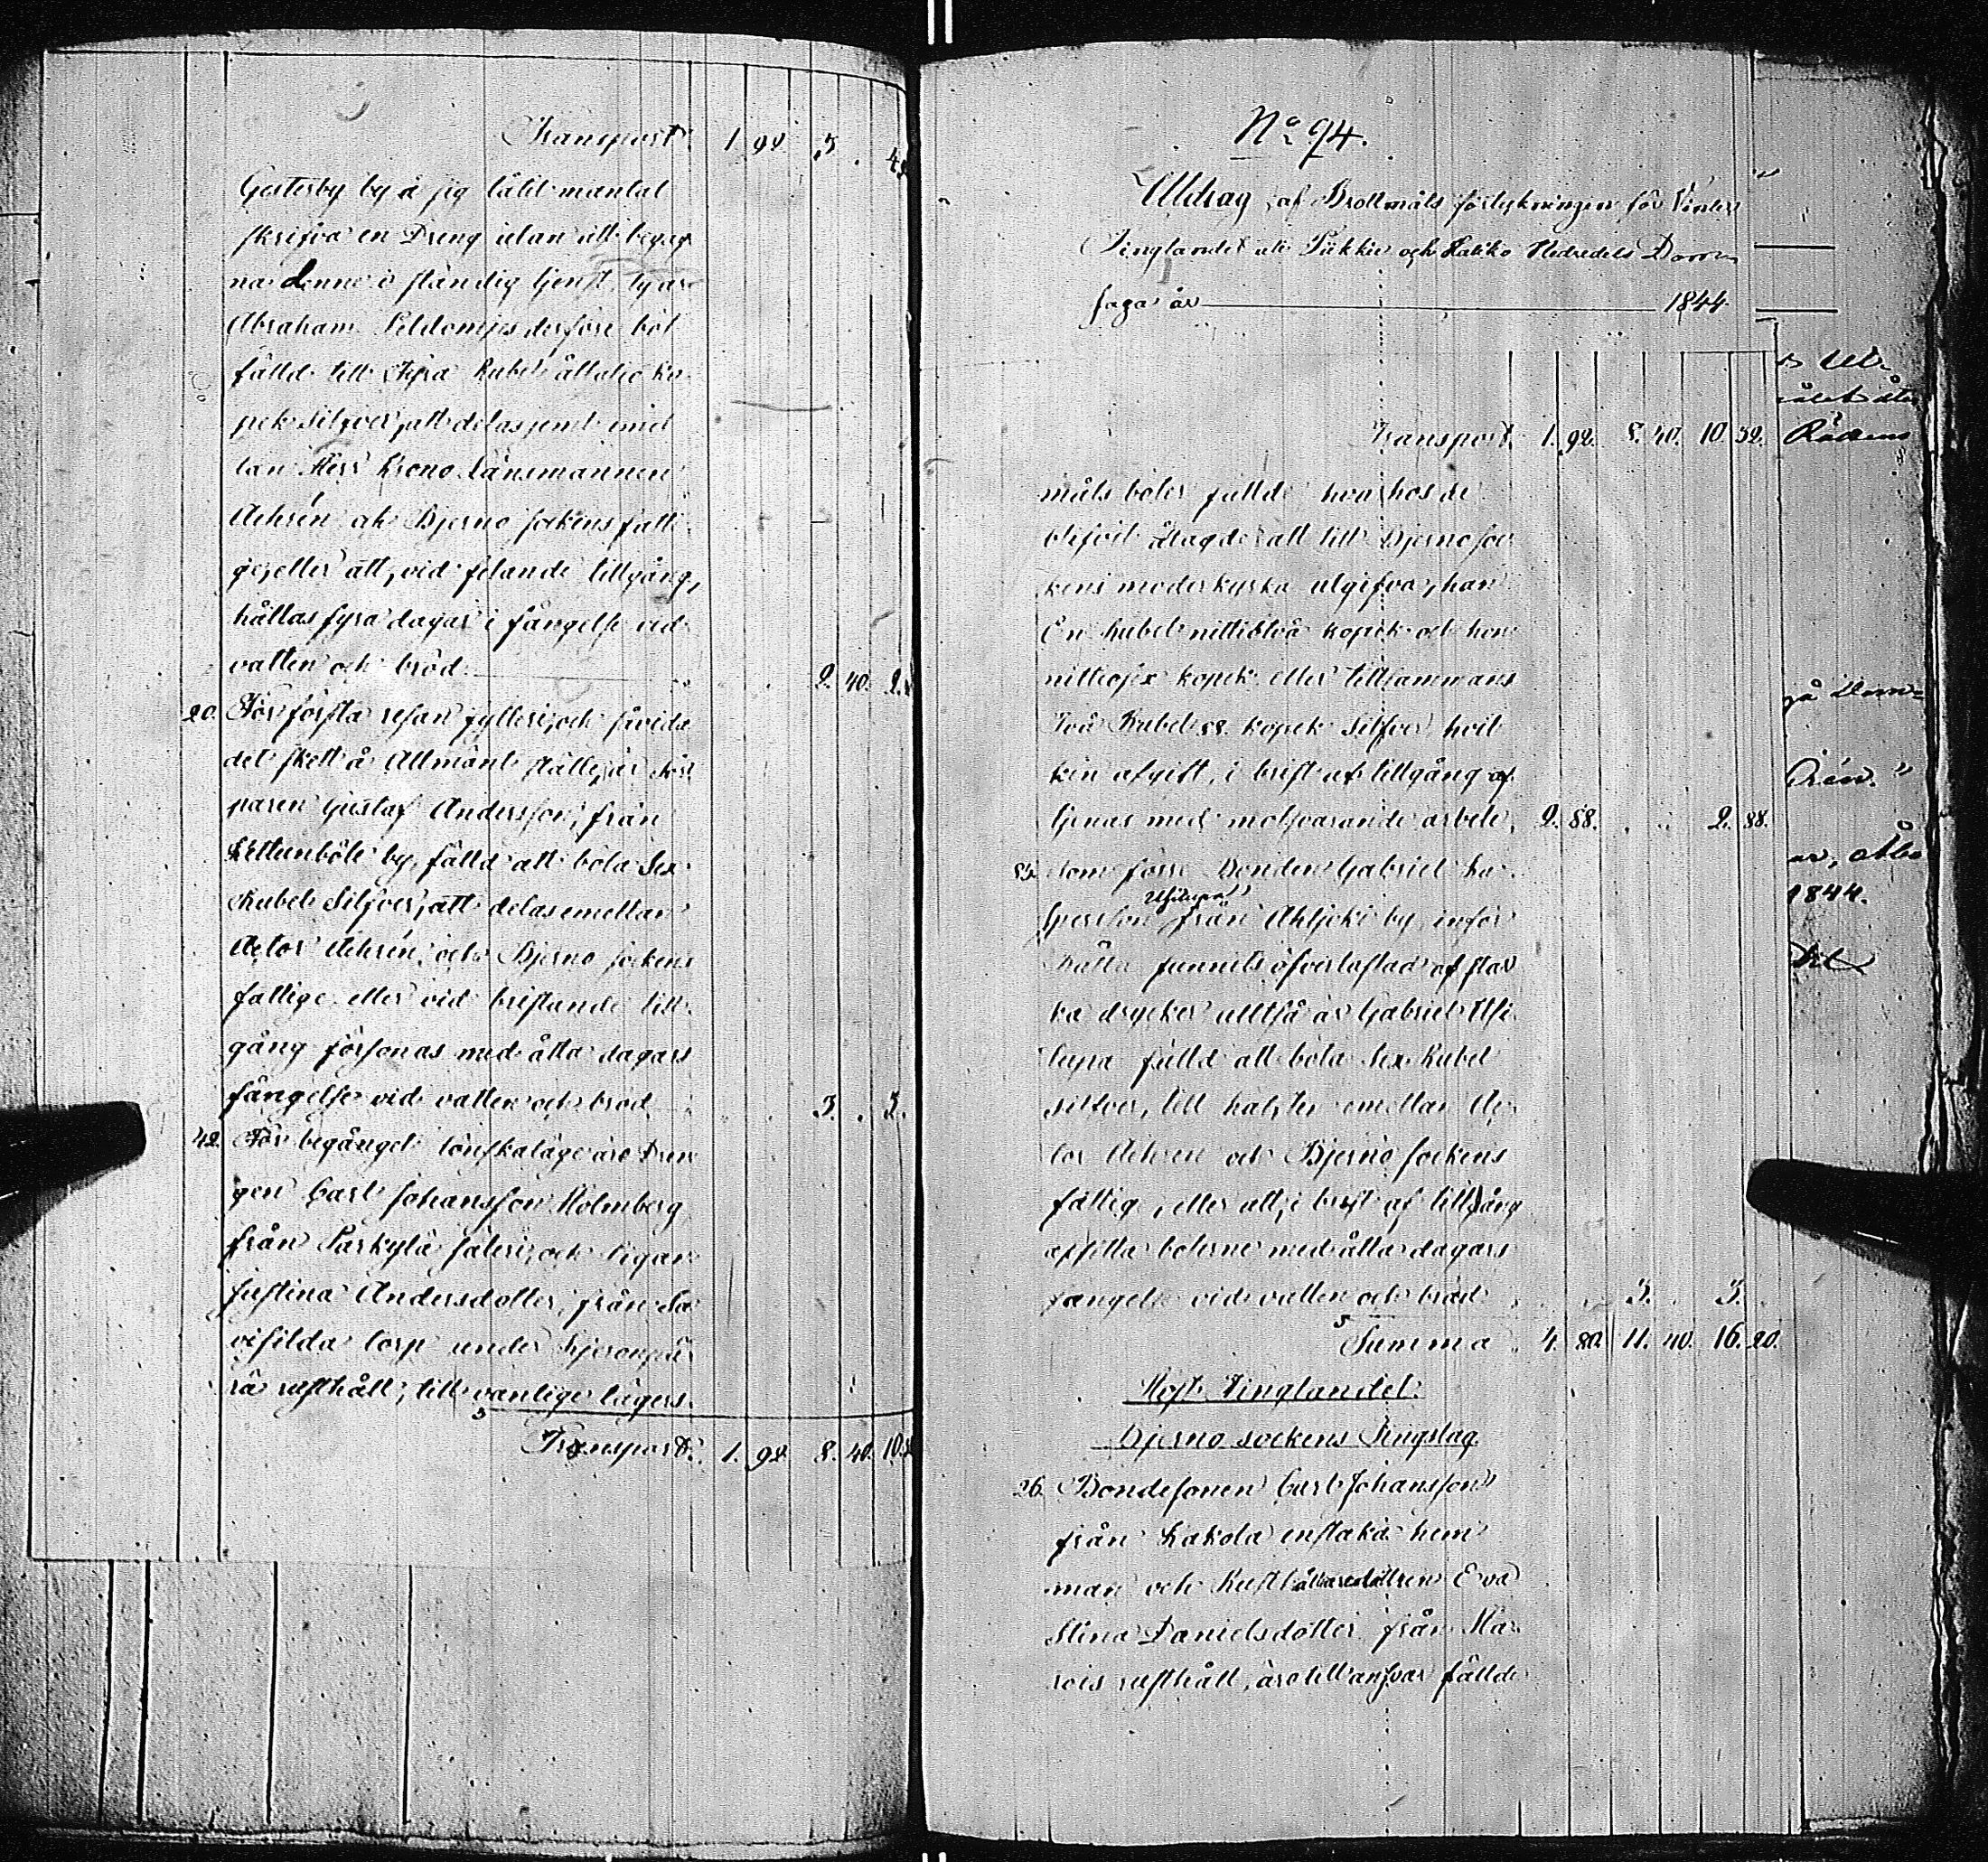 Transport. 1 92 3 . 4
Gestersby by å sig låtit mantal
skrifva en Dreng utan att begag
na denne i ständig tjenst, ty är
Abraham derföre böt
fälld till fyra Rubel åttatio ko
pek silfver, att delas jemt emel
lan Herr Krono Länsmannen
och Bjerno sockens fatti
ge, eller att, vid felande tillgång,
hållas fyra dagar i fängelse vid
vatten och bröd . . 2. 40. 2.
20. För första resan fylleri, och såvida
det skett å Allmänt ställe, är
paren Gustaf Andersson, från
Kettunböle by, fälld att böta Sex
Rubel Silfver, att delas emellan
Actor och Bjerno sockens
fattige eller vid bristande till
gång försonas med åtta dagars
fängelse vid vatten och bröd . . 3. . 3.
42. För begånget lönskaläge äro Dren
gen Carl Johansson Holmberg
från Särkylä säteri, och Pigan
Justina Andersdotter, från Sa
torp under
rä rusthåll, till vanlige lägers
Transport. 1. 92 8. 40. 10.
No 94.
Utdrag af Brottmåls förteckningen för Vinter
Tinglandet uti Pikkie och Halikko Häradets Dom
saga år 1844
Transport. 1. 92. 8. 40. 10. 32.
måls böter fällde hvarhos de
blifvit ålagde att till Bjerno soc
kens moderkyrka utgifva, han
En Rubel nittiotvå kopek och hon
nittiosex kopek eller tillsammans
Två Rubel 88. kopek Silfver hvil
ken afgift, i brist af tillgång af
tjenas med motsvarande arbete, 2. 88. . . 2. 88.
Som förre Bonden Gabriel Ka
spersson från Ahljoki by, inför
Rätta funnits öfverlastad af star
ka drycker alltså är Gabriel
fälld att böta Sex Rubel
silfver, till hälften emellan Ac
tor och Bjerno sockens
fattig, eller att, i brist af tillgång
afsitta böterne med åtta dagars
fängelse vid vatten och bröd . . 3. . 3.
Summa 4. 80. 11. 40. 16. 20.
Höst Tinglandet.
Bjerno sockens Tingslag.
26. Bondesonen Carl Johansson
från Kakola enstaka hem
man och Rusthållaredottren Eva
Stina Danielsdotter från Ma
rois rusthåll, äro till ansvar fällde
Rättens
1844.